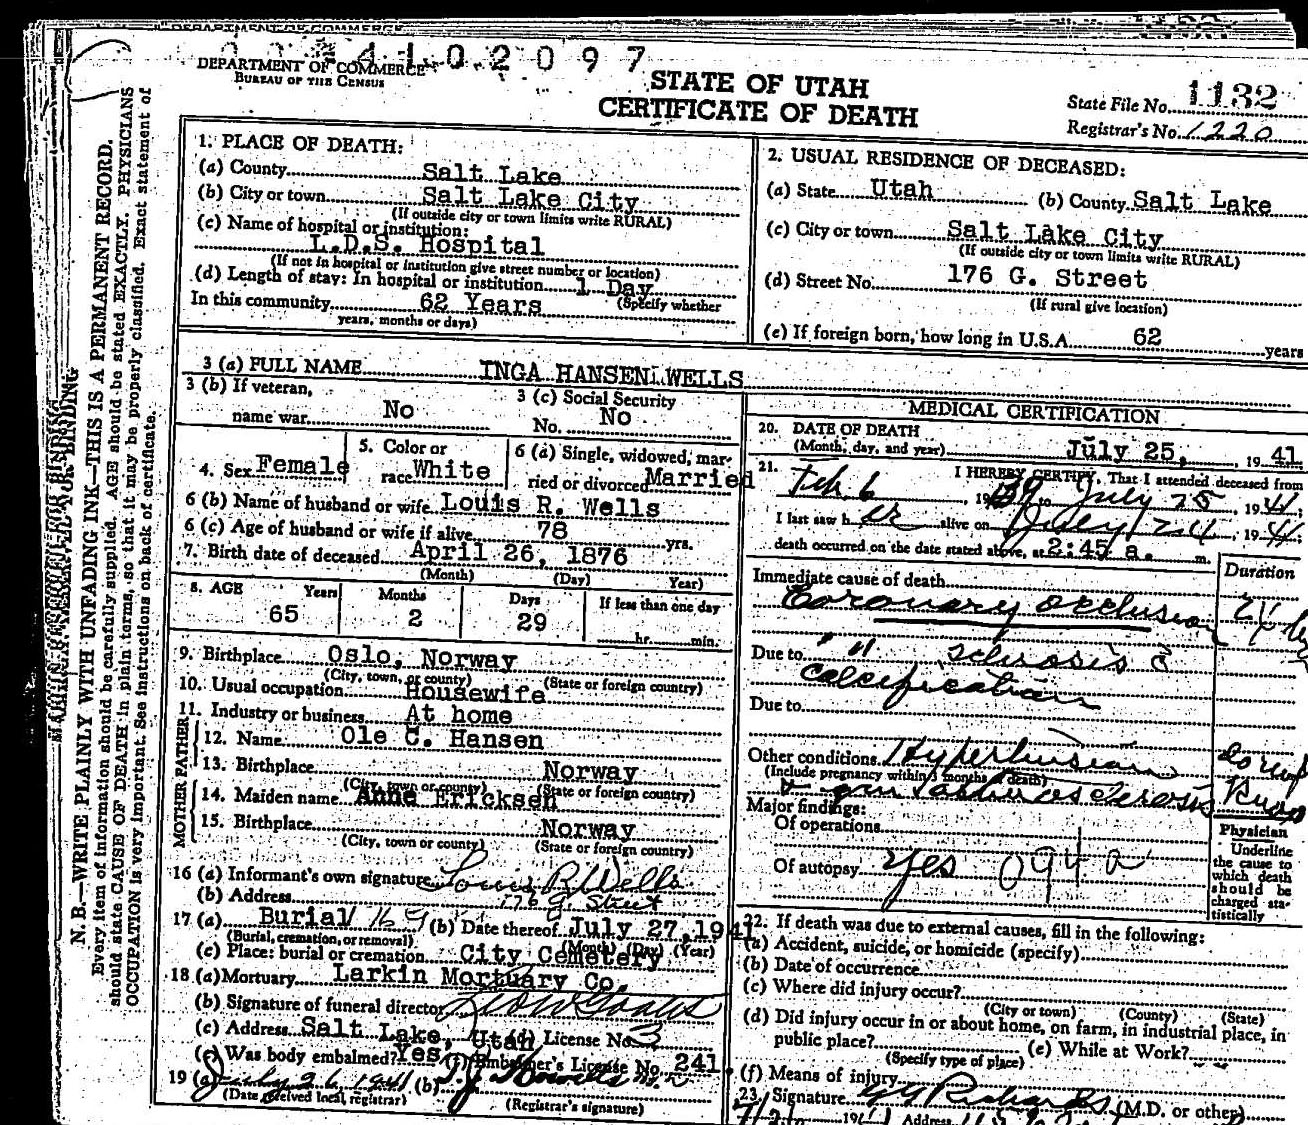 DEPARTMENT OF COMMERCE
4102097
DEPARTMENT OF COMMERCE
BUREAU OF THE CENSUS
STATE OF UTAH
CERTIFICATE OF DEATH
State File No. 1132
Registrar's No. 1220
N. B.—WRITE PLAINLY WITH UNFADING INK—THIS IS A PERMANENT RECORD.
Every item of information should be carefully supplied. AGE should be stated EXACTLY. PHYSICIANS
should state CAUSE OF DEATH in plain terms, so that it may be properly classified. Exact statement of
OCCUPATION is very important. See instructions on back of certificate.
1. PLACE OF DEATH:
(a) County Salt Lake
(b) City or town Salt Lake City
(If outside city or town limits write RURAL)
(c) Name of hospital or institution:
L.D.S. Hospital
(If not in hospital or institution give street number or location)
(d) Length of stay: In hospital or institution 1 Day
(Specify whether
In this community 62 Years
years, months or days)
2. USUAL RESIDENCE OF DECEASED:
(a) State Utah (b) County Salt Lake
(c) City or town Salt Lake City
(If outside city or town limits write RURAL)
(d) Street No. 176 G. Street
(If rural give location)
(e) If foreign born, how long in U.S.A. 62 years
3 (a) FULL NAME INGA HANSEN WELLS
3 (b) If veteran,
name war No
3 (c) Social Security
No. No
4. Sex Female
5. Color or
race White
6 (a) Single, widowed, mar-
ried or divorced Married
6 (b) Name of husband or wife Louis R. Wells
6 (c) Age of husband or wife if alive 78 yrs.
7. Birth date of deceased April 26, 1876
(Month) (Day) Year)
8. AGE Years Months Days If less than one day
65 2 29 hr. min.
9. Birthplace Oslo, Norway
(City, town, or county) (State or foreign country)
10. Usual occupation Housewife
11. Industry or business At home
FATHER
12. Name Ole C. Hansen
13. Birthplace Norway
(City, town or county) (State or foreign country)
MOTHER
14. Maiden name Anne Ericksen
15. Birthplace Norway
(City, town or county) (State or foreign country)
16 (a) Informant's own signature Louis R Wells
(b) Address 176 G Street
17 (a) Burial 169 (b) Date thereof July 27, 1941
(Burial, cremation, or removal) (Month) (Day) (Year)
(c) Place: burial or cremation City Cemetery
18 (a) Mortuary Larkin Mortuary Co.
(b) Signature of funeral director
(c) Address Salt Lake, Utah (d) License No. 3
(e) Was body embalmed? Yes (f) Embalmer's License No. 241
19 (a) July 26 1941 (b)
(Date received local registrar) (Registrar's signature)
MEDICAL CERTIFICATION
20. DATE OF DEATH
(Month, day, and year) July 25, 1941
21. I HEREBY CERTIFY, That I attended deceased from
Feb. 6, 1939 to July 25, 1941
I last saw her alive on July 24, 1941;
death occurred on the date stated above, at 2:45 a. m.
Immediate cause of death Duration
Coronary occlusion 24
Due to " " sclerosis c̄
calcification
Due to
Other conditions Hypertension
(Include pregnancy within 3 months of death)
Major findings:
Of operations
Of autopsy yes 094a
Physician
Underline
the cause to
which death
should be
charged sta-
tistically
22. If death was due to external causes, fill in the following:
(a) Accident, suicide, or homicide (specify)
(b) Date of occurrence
(c) Where did injury occur?
(City or town) (County) (State)
(d) Did injury occur in or about home, on farm, in industrial place, in
public place? (e) While at Work?
(Specify type of place)
(f) Means of injury
23. Signature G G Richards (M.D. or other)
Address